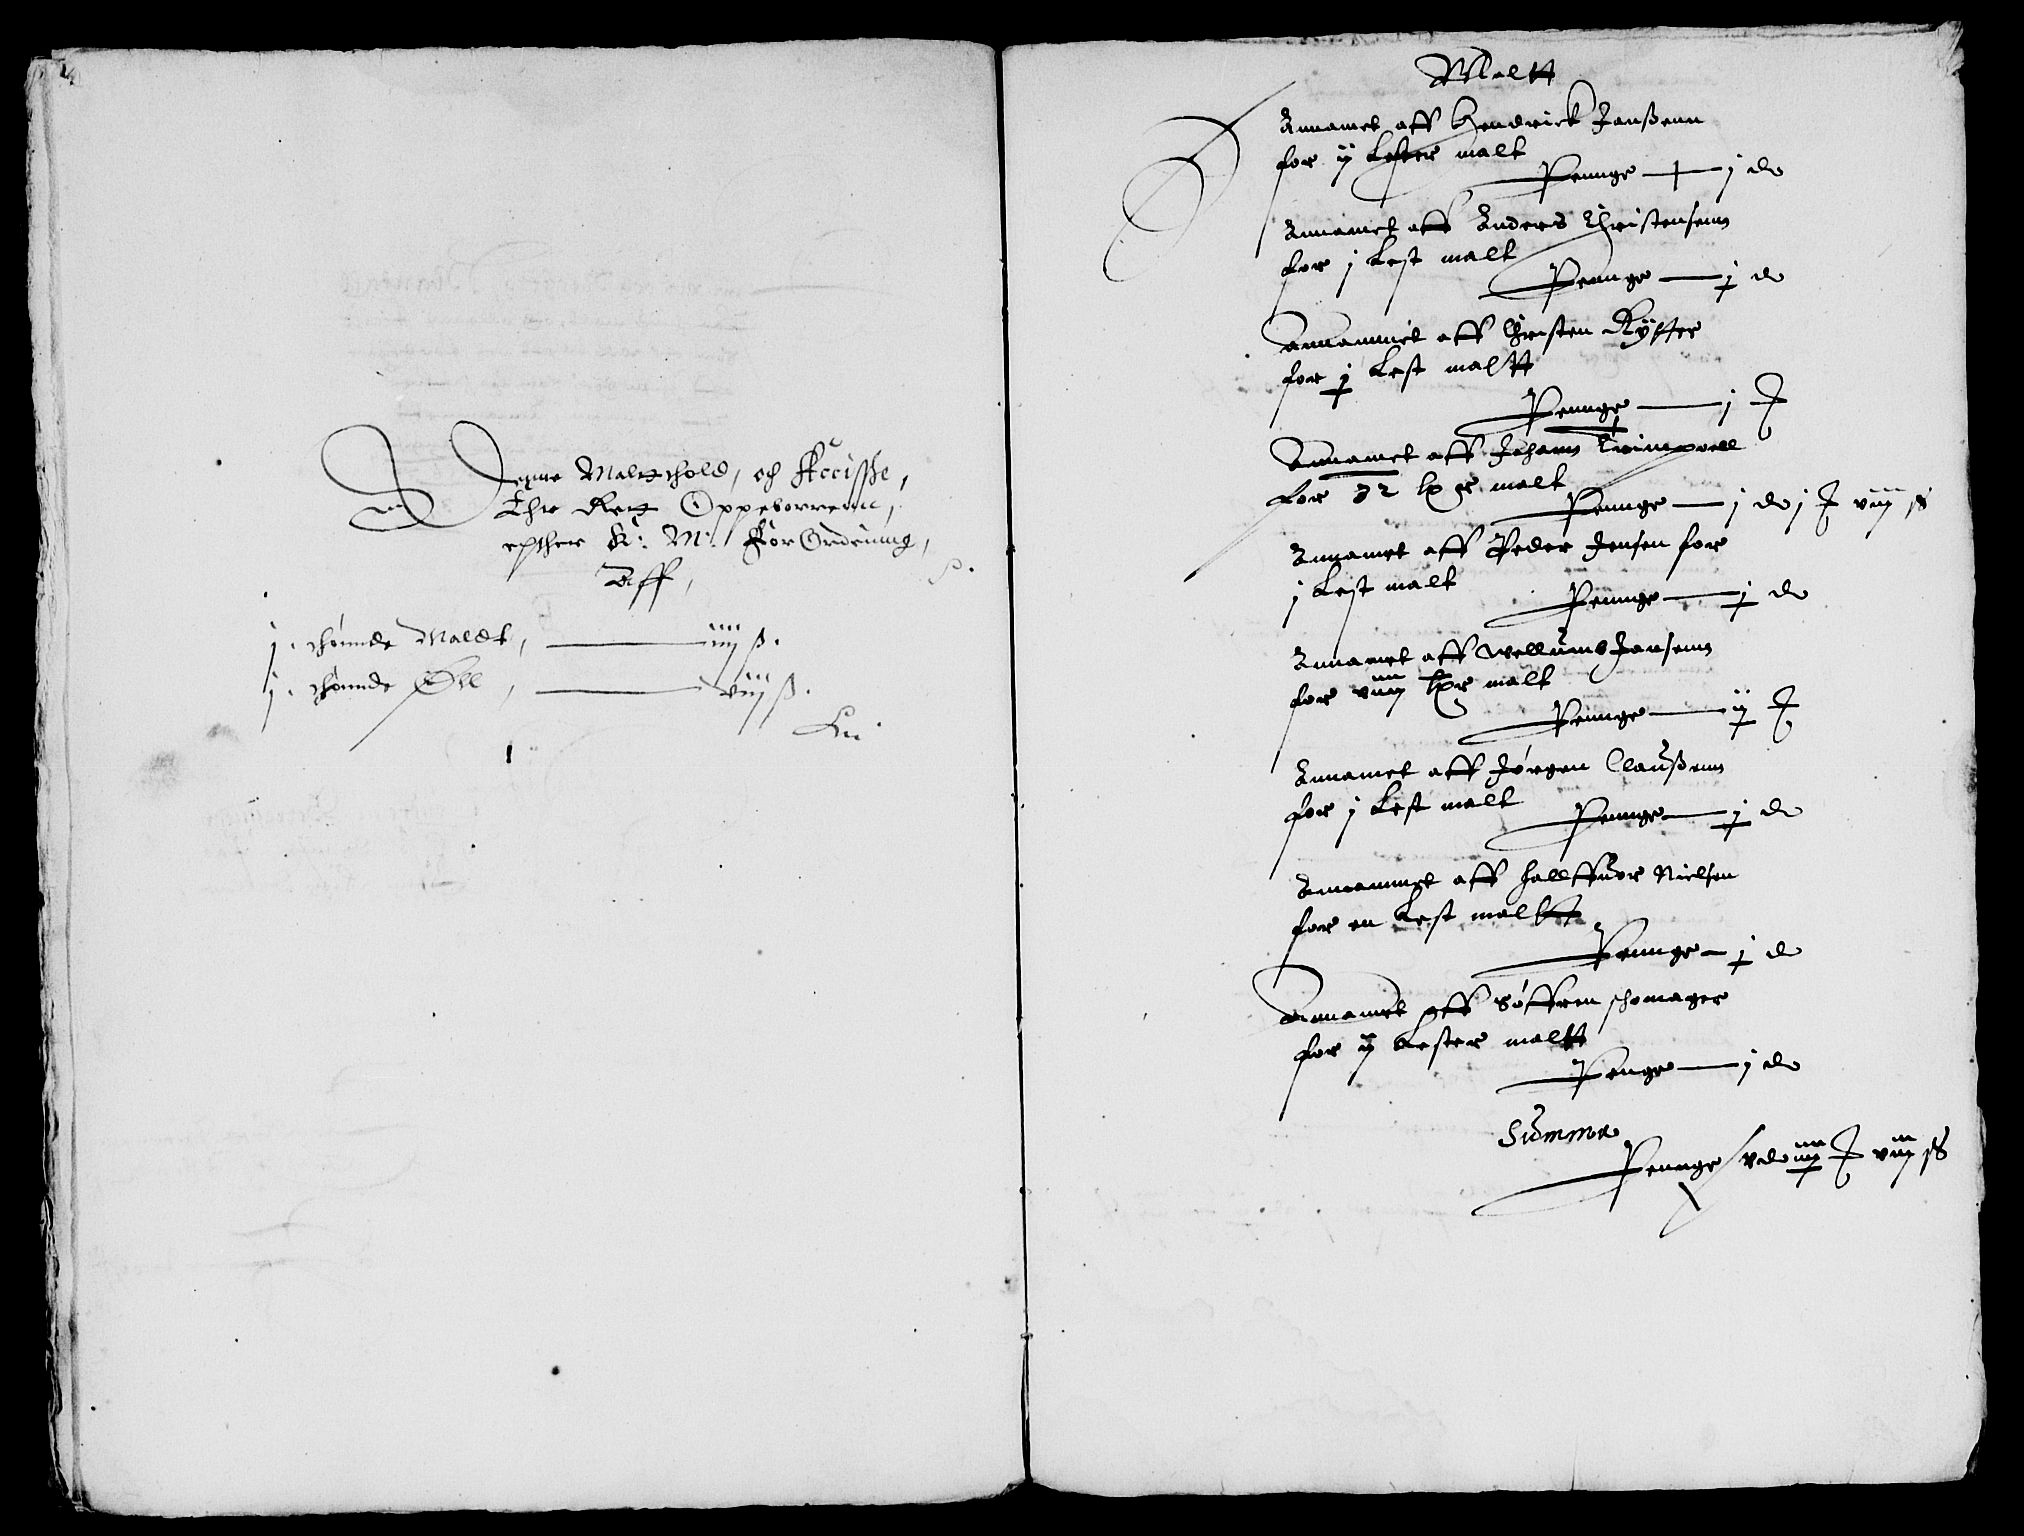 Denne Maltthold, och Accisse,
Ehr Rett Oppeborrenn,
epther K: M: ForOrdning,
Aff,
j. thønnde Maldt, — iiij ß.
j. thønnde Øll, — viij ß.
Maltt
Annamet aff Hendrick Janßenn
for ij Lester malt
Pennge — j d
Annamet aff Anders Christensenn
for j Lest malt
Pennge — j d
Annammet aff Christen Rytter
for j Lest maltt
Pennge — j
Annamet aff Johann
for 32 malt
Pennge — j d j viij ß
Annamet aff Peder Jensen for
j Lest malt
Pennge — j d
Annamet aff Wellumb Jansenn
for malt
Pennge — ij
Annamet aff Jørgen Claußenn
for j Lest malt
Pennge — j d
Annammet aff Hallffuor Nielsen
for en Lest maltt
Pennge — j d
Annamet aff Søffren schomager
for ij Lester maltt
Penge — j d
Summa
Pennge viij ß